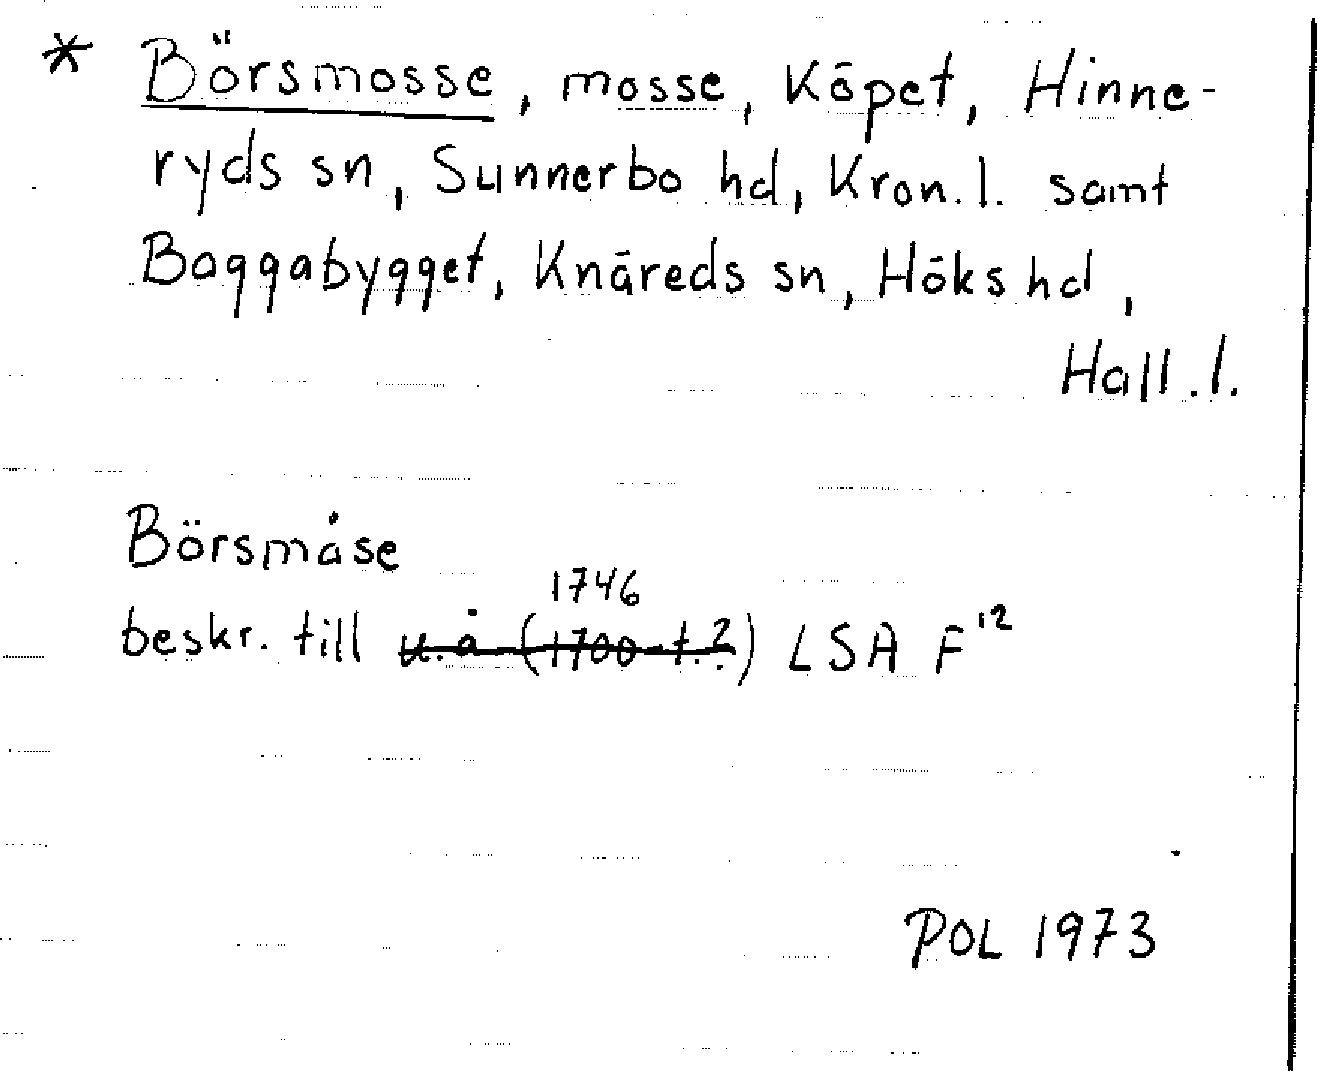 * Börsmosse, mosse, Köpet, Hinne-
ryds sn, Sunnerbo hd, Kron. l. samt
Baggabygget, Knäreds sn, Höks hd,
Hall. l.
Börsmåse
1746
beskr. till u. å (1700-t.?) LSA F12
POL 1973